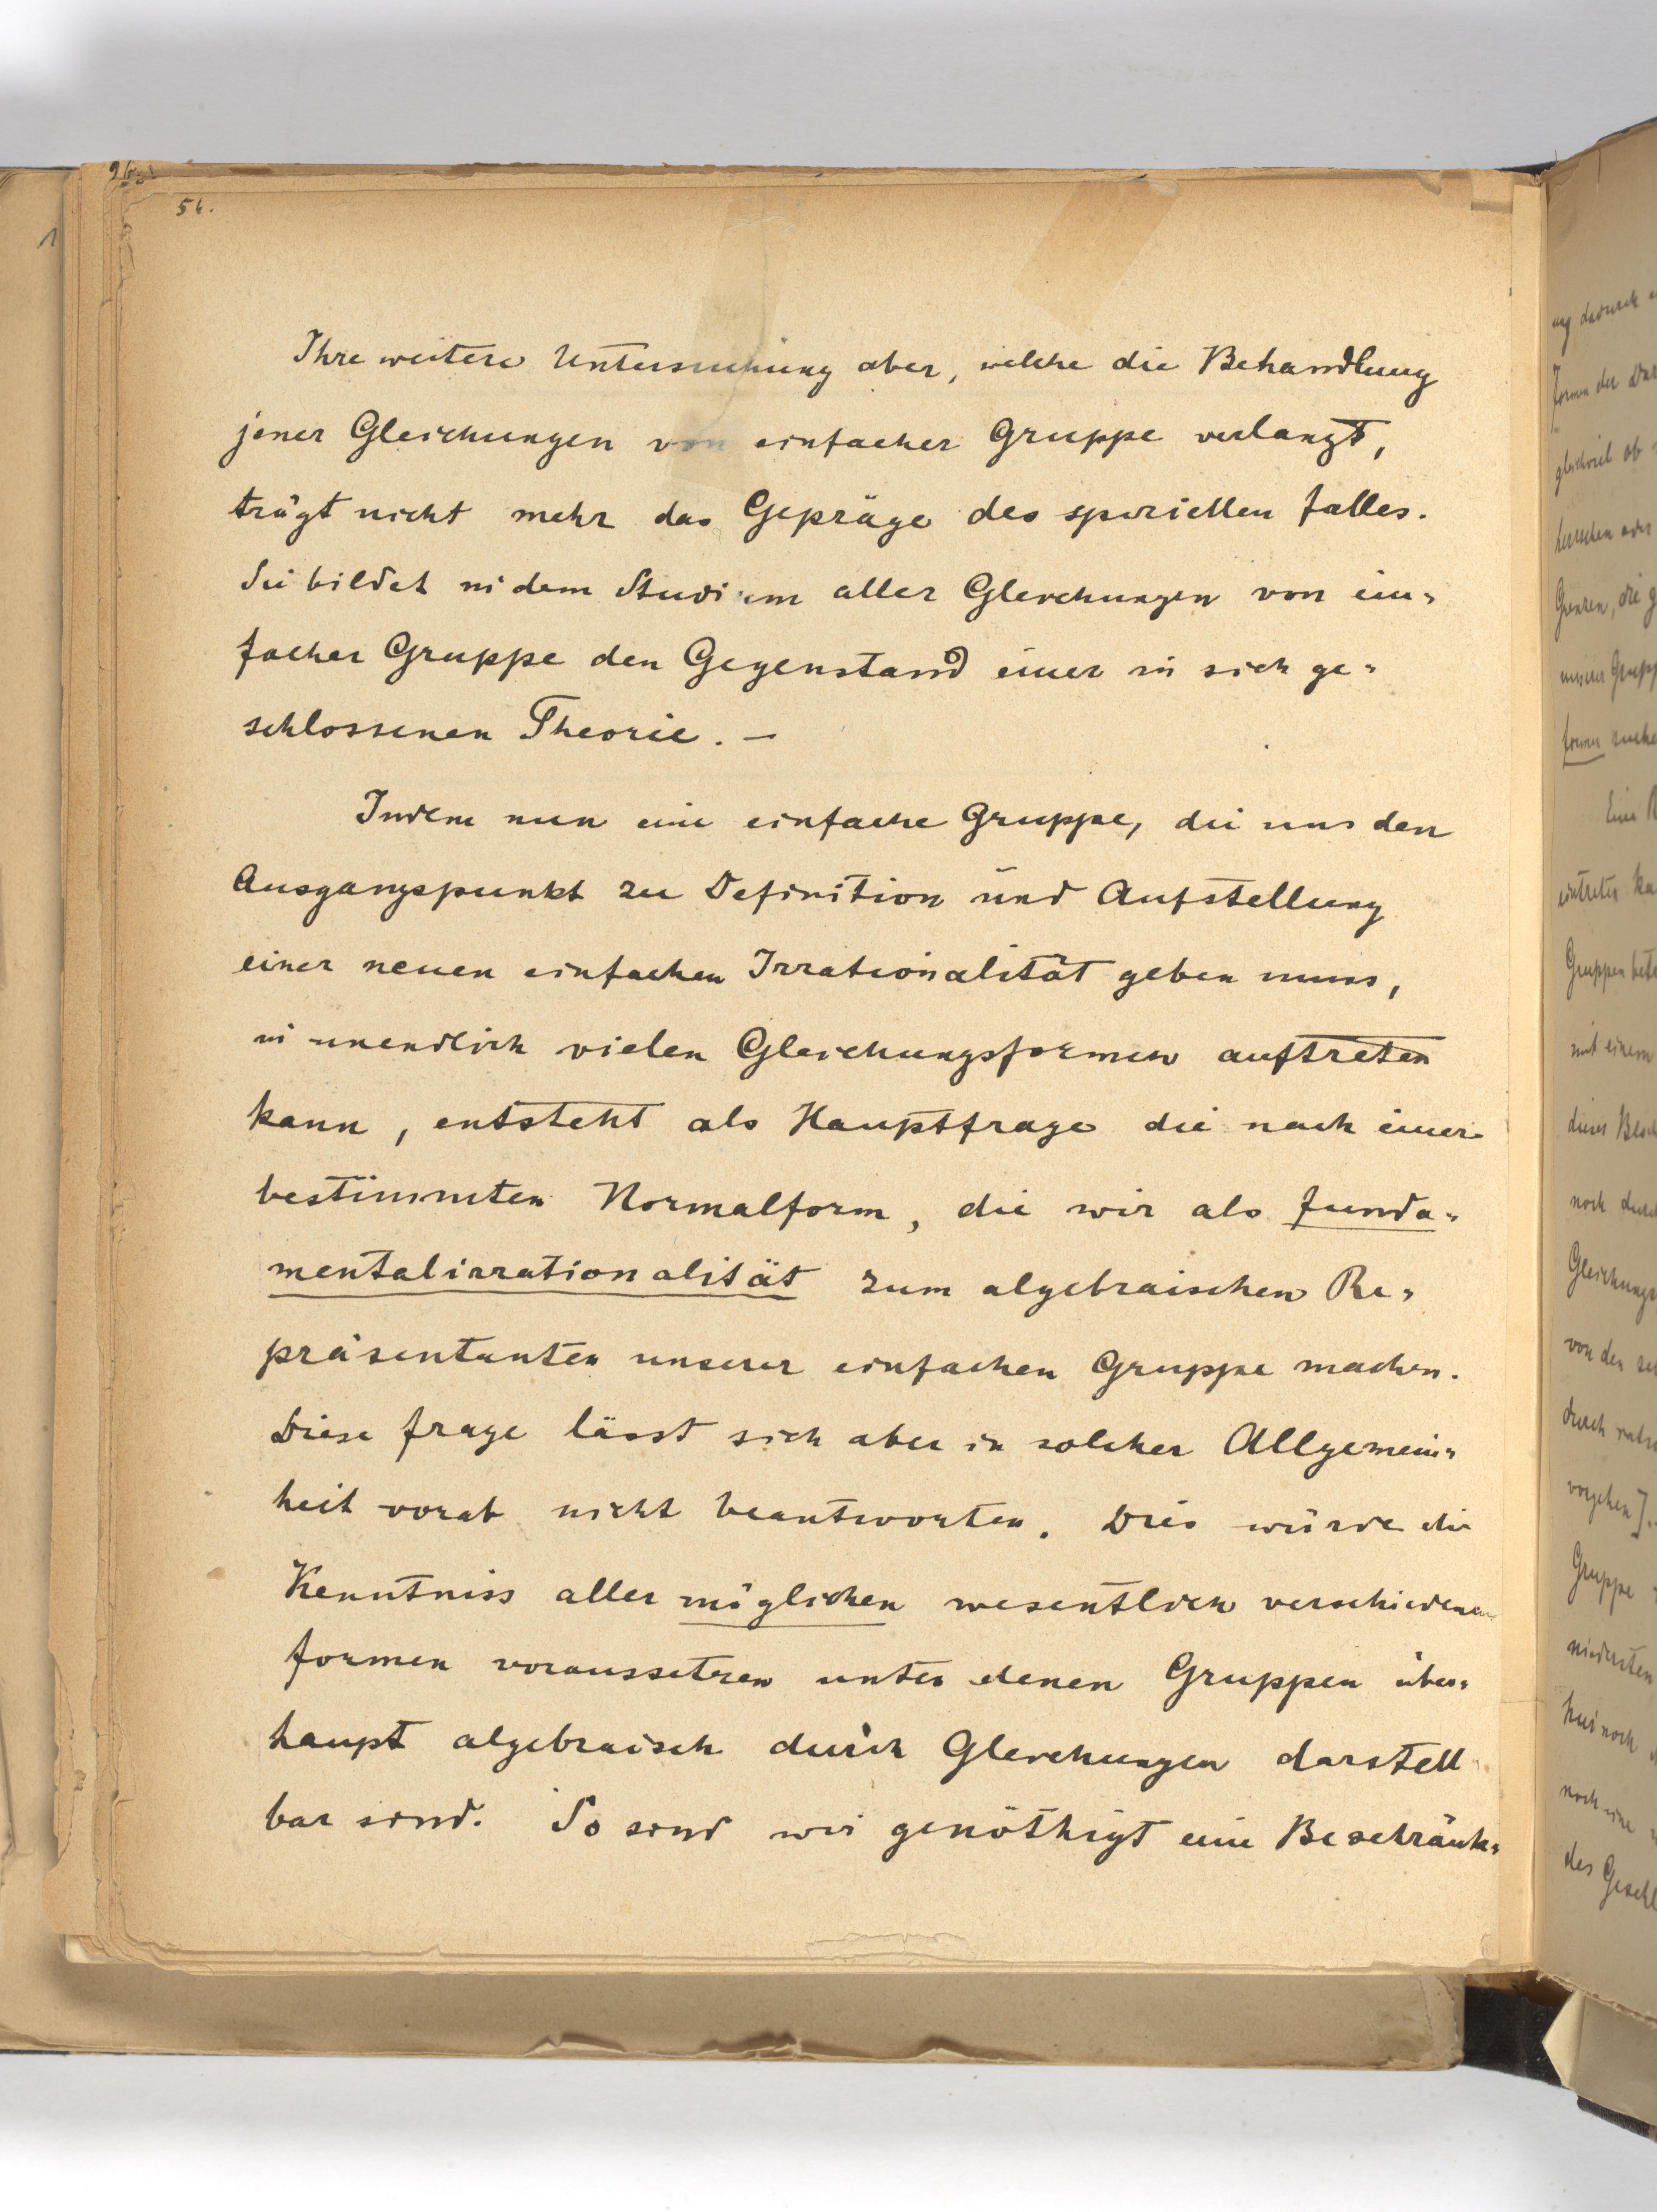 56.
Ihre weitere Untersuchung aber, welche die Behandlung
jener Gleichungen von einfacher Gruppe verlangt,
trägt nicht mehr das Gepräge des speziellen Falles.
Sie bildet in dem Studium aller Gleichungen von ein-
facher Gruppe den Gegenstand einer in sich ge-
schlossenen Theorie. —
Indem nun eine einfache Gruppe, die uns den
Ausgangspunkt zu Definition und Aufstellung
einer neuen einfachen Irrationalität geben muss,
in unendlich vielen Gleichungsformen auftreten
kann, entsteht als Hauptfrage die nach einer
bestimmten Normalform, die wir als Funda-
mentalirrationalität zum algebraischen Re-
präsentanten unserer einfachen Gruppe machen.
Diese Frage lässt sich aber in solcher Allgemein-
heit vorab nicht beantworten. Dies würde die
Kenntniss aller möglichen wesentlich verschiedenen
Formen voraussetzen unter denen Gruppen über-
haupt algebraisch durch Gleichungen darstell
bar sind. So sind wir genöthigt eine Beschränk-
ung dadurch
Formen der
gleichviel ob
herrschen oder
Grenzen, die
unserer
former suche
Eine
eintreten
Gruppen
mit einem
dieses
noch
von den
durch
vorgehen].
Gruppe
niedersten
hier noch
noch eine
des